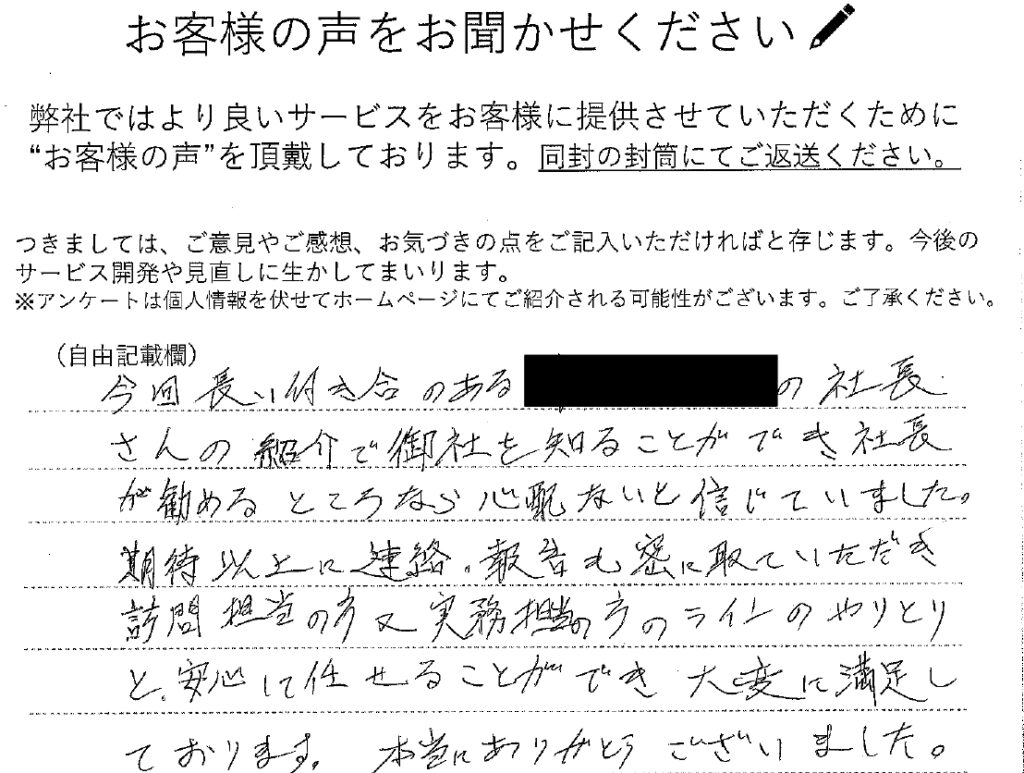 お客様の声をお聞かせください
弊社ではより良いサービスをお客様に提供させていただくために
“お客様の声”を頂戴しております。同封の封筒にてご返送ください。
つきましては、ご意見やご感想、お気づきの点をご記入いただければと存じます。今後の
サービス開発や見直しに生かしてまいります。
※アンケートは個人情報を伏せてホームページにてご紹介される可能性がございます。ご了承ください。
（自由記載欄）
今回長い付き合のある の社長
さんの紹介で御社を知ることができ社長
が勧めるところなら心配ないと信じていました。
期待以上に連絡、報告も密に取ていただき
訪問担当の方又実務担当の方のラインのやりとり
と、安心して任せることができ大変に満足し
ております。本当にありがとうございました。